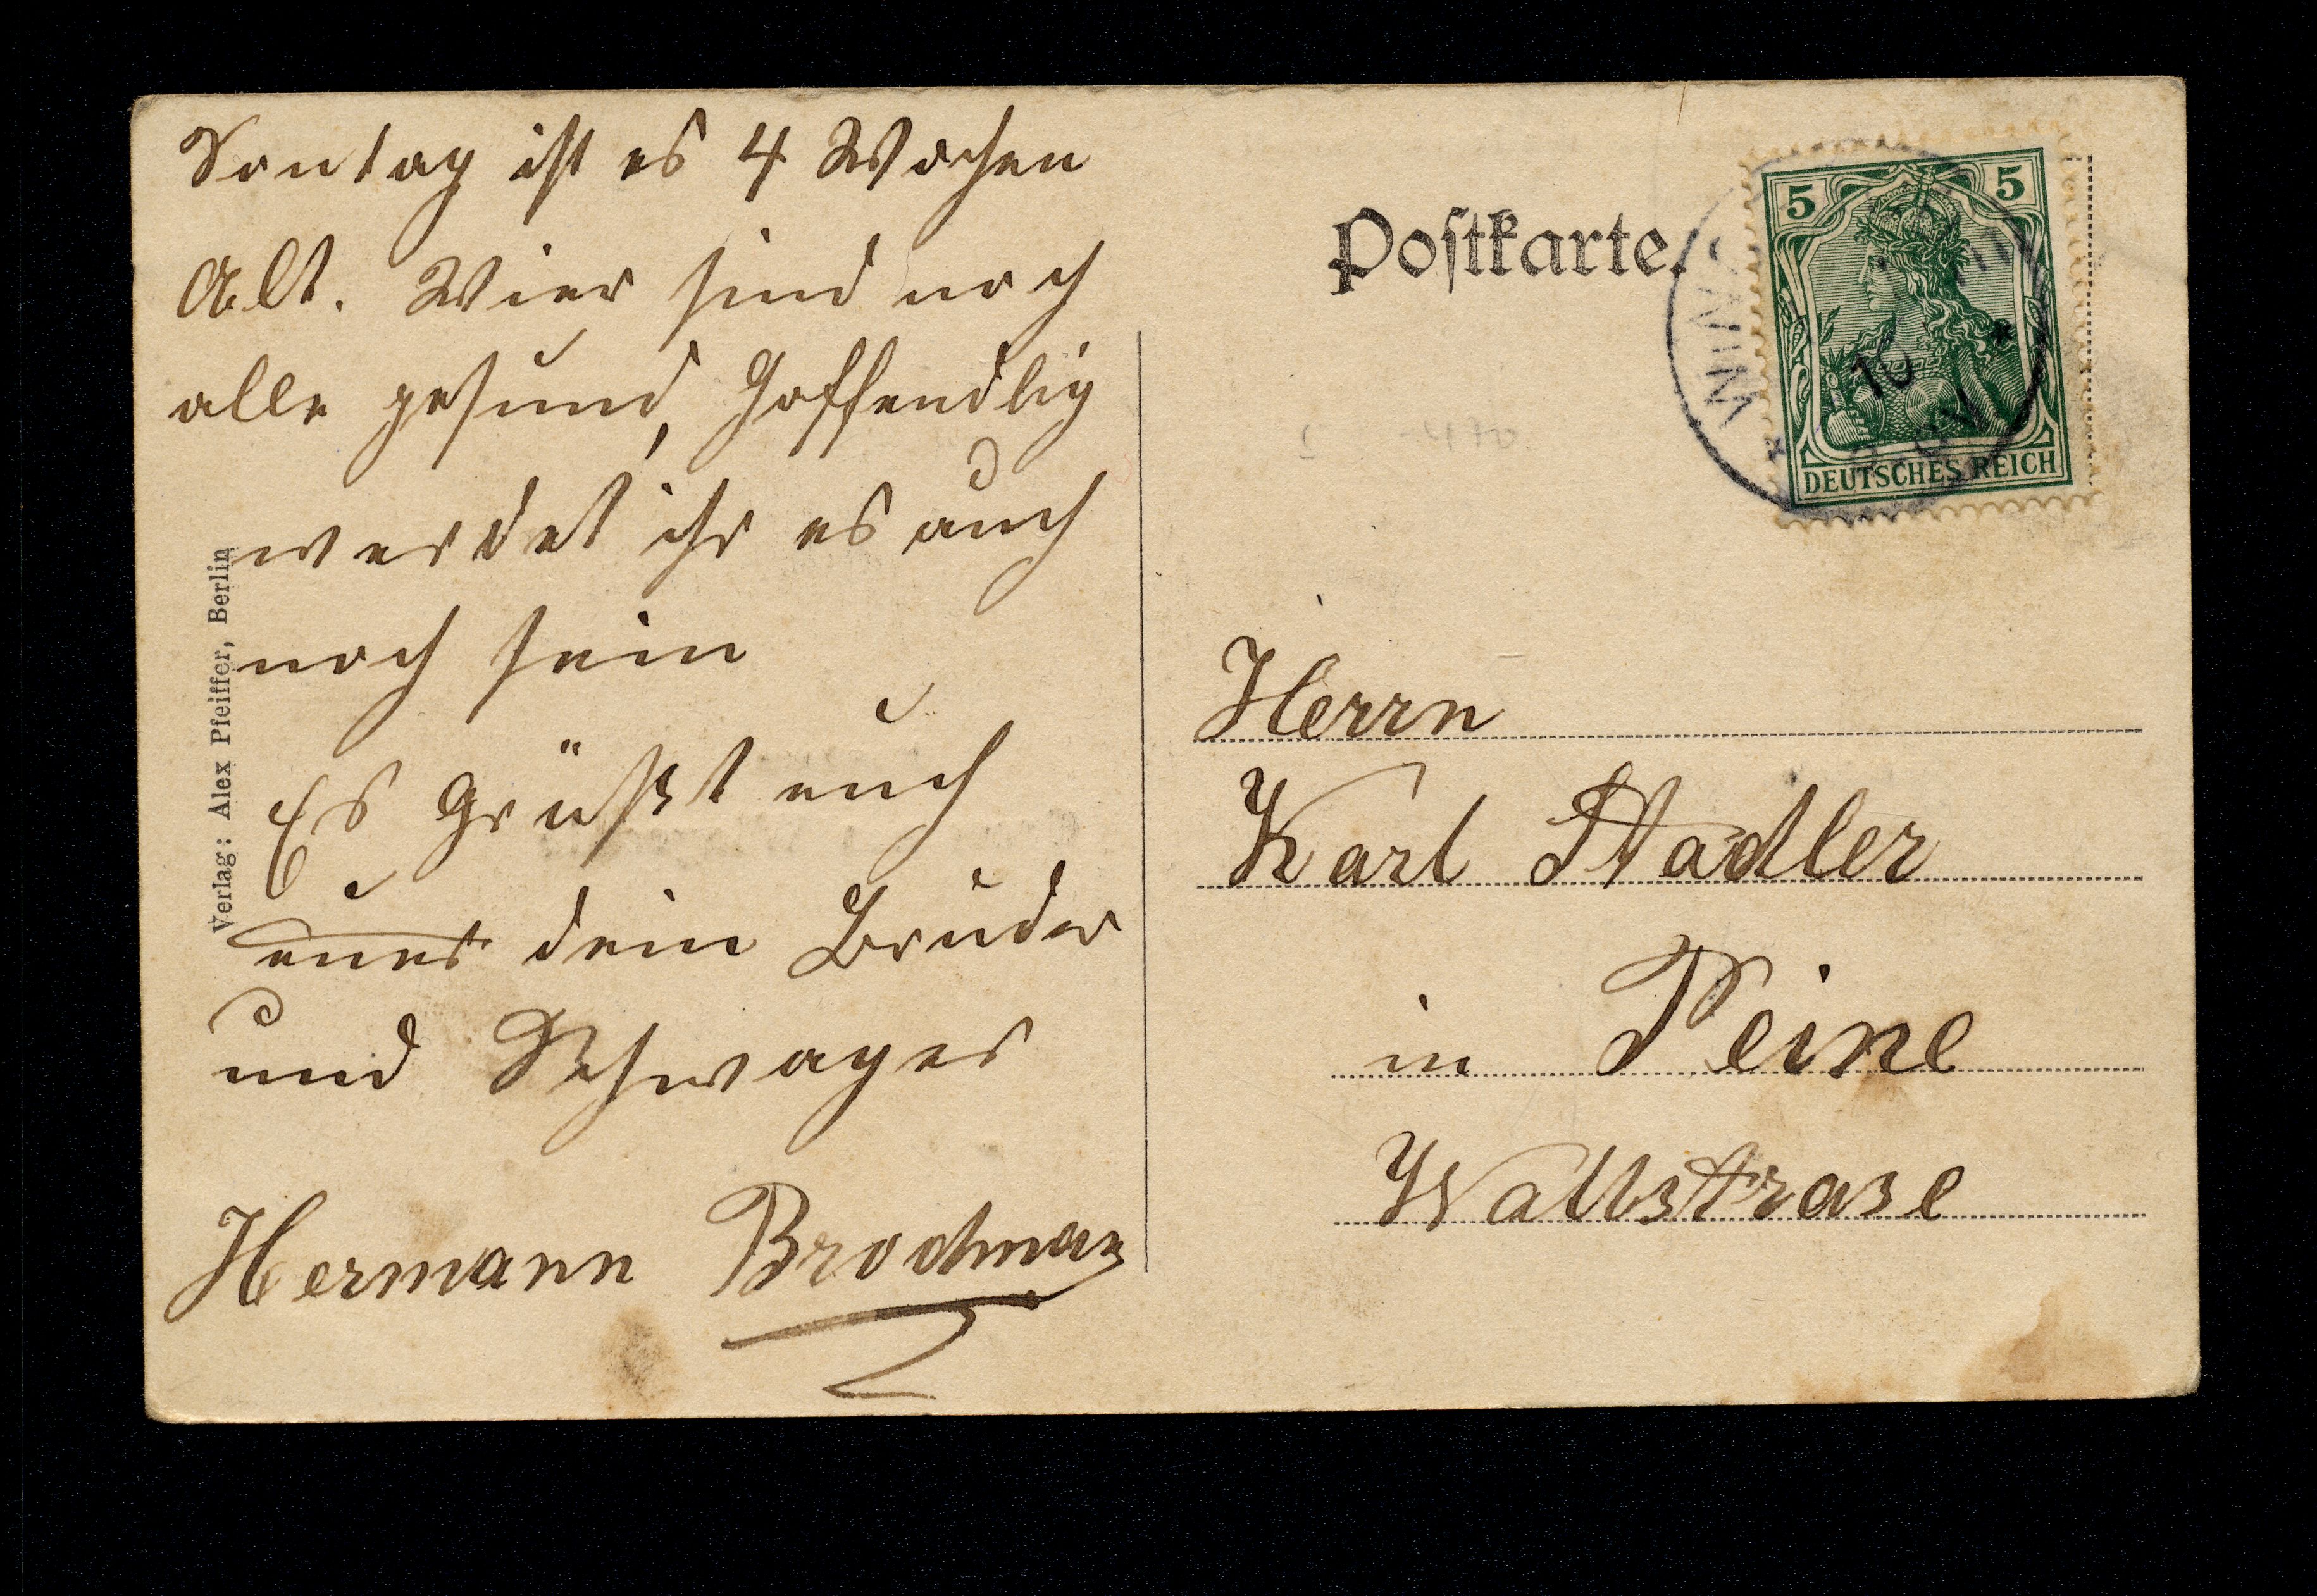 Sontag ist es 4 Wochen
Alt. Wier sind noch
alle gesund, Hoffendlig
werdet ihr es auch
noch sein
Es Grüßt euch
euer dein Bruder
und Schwager
Hermann
Verlag: Alex Pfeiffer, Berlin
Postkarte.
5 5
DEUTSCHES REICH
Herrn
Karl Stadler
in Peine
Wallstrase